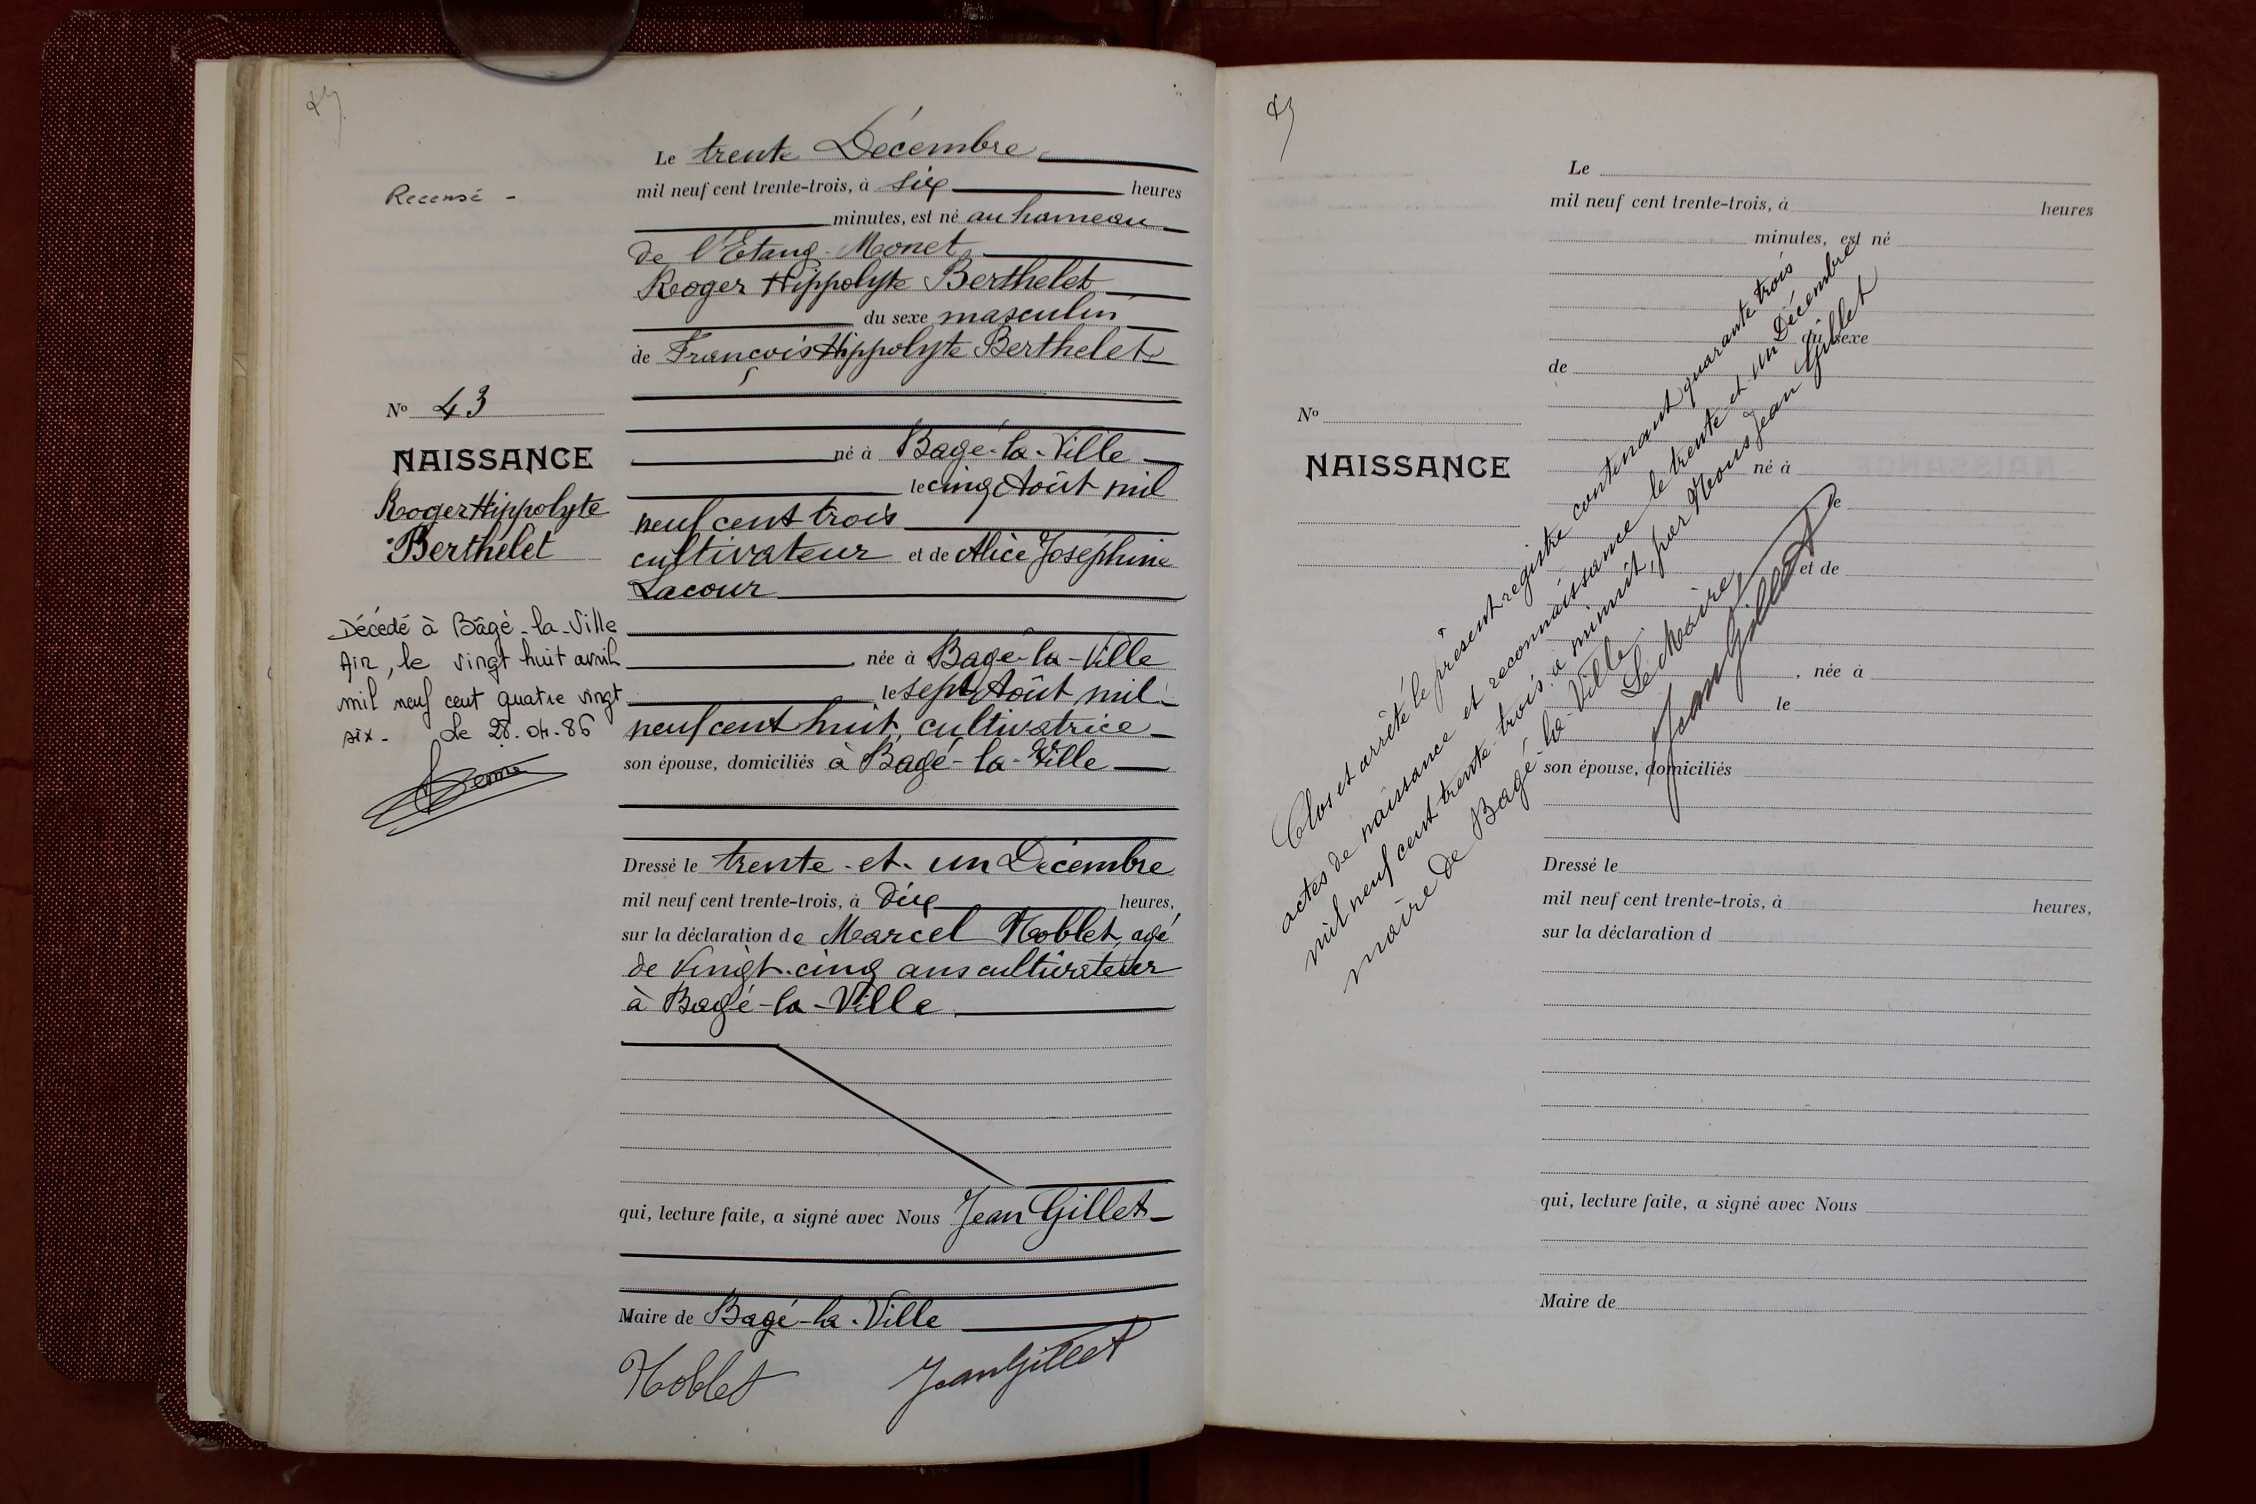 Recensé -
Le trente Décembre
mil neuf cent trente-trois, à six heures
minutes, est né au hameau
de l'Etang-Monet
Roger Hippolyte Berthelet
du sexe masculin
de François Hippolyte Berthelet
né à Bagé-la-Ville
le cinq Août mil
neuf cent trois
cultivateur et de Alice Joséphine
Lacour
née à Bagé-la-Ville
le sept Août mil
neuf cent huit, cultivatrice
son épouse, domiciliés à Bagé-la-Ville
Dressé le trente-et-un Décembre
mil neuf cent trente-trois, à dix heures,
sur la déclaration de Marcel Noblet, agé
de vingt-cinq ans cultivateur
à Bagé-la-Ville
qui, lecture faite, a signé avec Nous Jean Gillet
Maire de Bagé-la-Ville
Noblet Jean Gillet
No 43
NAISSANCE
Roger Hippolyte
Berthelet
Décédé à Bâgé-la-Ville
Ain, le vingt huit avril
mil neuf cent quatre vingt
six. Le 28.04.86
Le
mil neuf cent trente-trois, à heures
minutes, est né
du sexe
de
No
NAISSANCE
né à
le
et de
, née à
le
son épouse, domiciliés
Dressé le
mil neuf cent trente-trois, à heures,
sur la déclaration d
qui, lecture faite, a signé avec Nous
Maire de
Clos et arrêté le présent registre contenant quarante trois
actes de naissance et reconnaissance le trente et un Décembre
mil neuf cent trente-trois à minuit, par Nous Jean Gillet
maire de Bagé-la-Ville.
Le Maire,
Jean Gillet